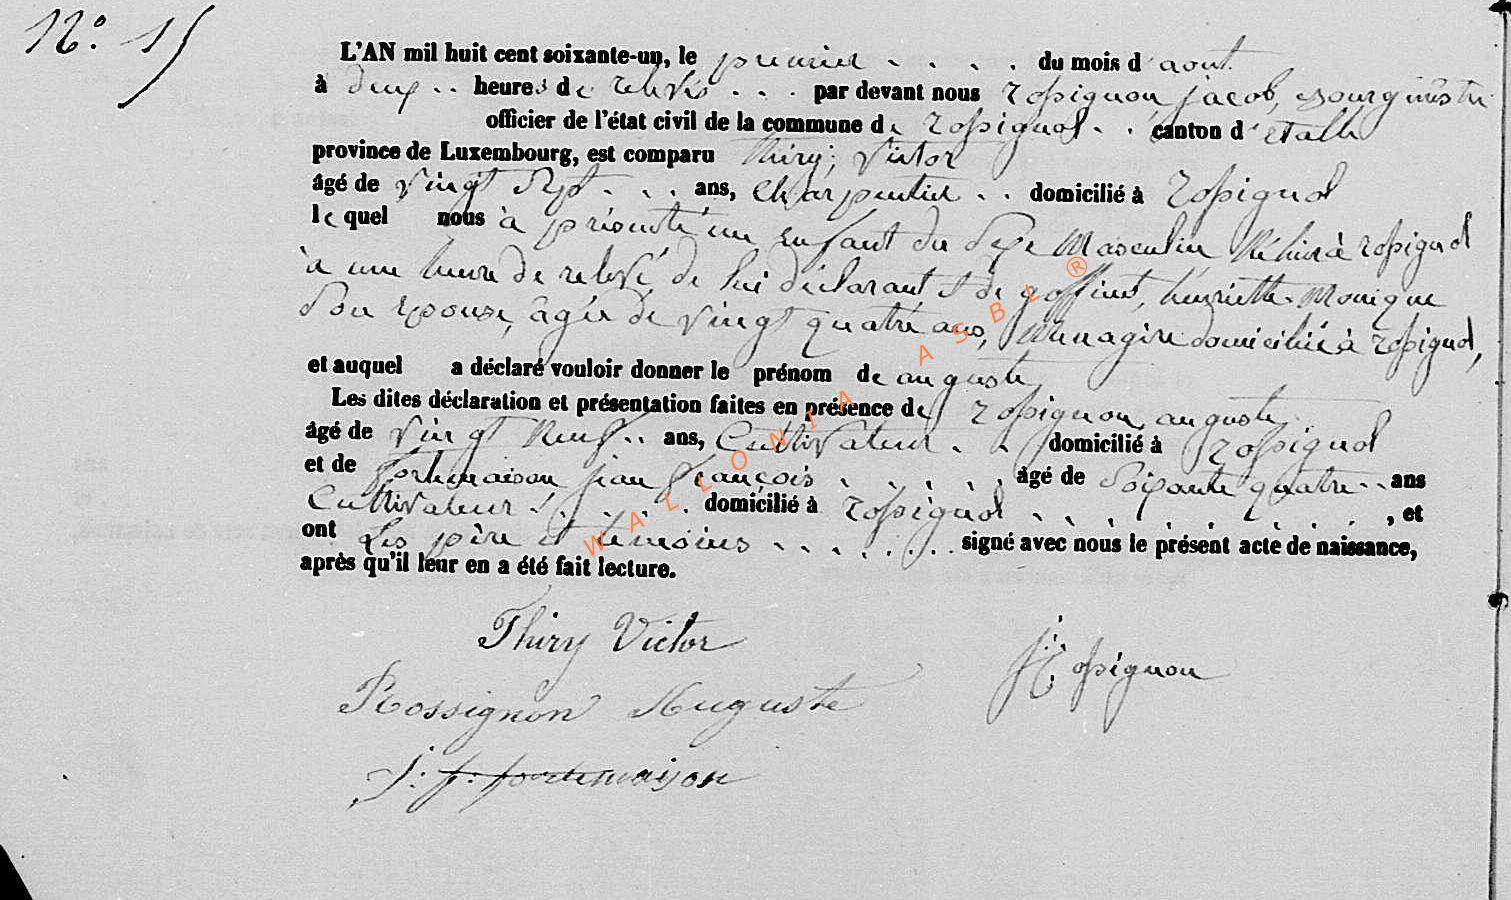 N.° 15
L'AN mil huit cent soixante-un, le premier . . . . du mois d'aout
à deux .. heures de relevée . . . par devant nous rossignon jacob, bourgmestre
officier de l'état civil de la commune de rossignol . . canton d'etalle
province de Luxembourg, est comparu thiry, Victor
âgé de vingt sept . . . ans, charpentier . . domicilié à rossignol
le quel nous à présenté un enfant du sexe Masculin né hier à rossignol
à une heure de relevé, de lui déclarant et de goffinet, henriette Monique
son épouse, âgée de vingt quatre ans, Ménagère domiciliée à rossignol,
et auquel a déclaré vouloir donner le prénom de auguste
Les dites déclaration et présentation faites en présence de rossignon auguste
âgé de vingt neuf .. ans, Cultivateur . . domicilié à rossignol
et de fortemaison jean françois . . . . . âgé de soixante quatre .. ans
Cultivateur . . . . domicilié à rossignol . . . . . . . . . , et
ont Les père et témoins . . . . . . . signé avec nous le présent acte de naissance,
après qu'il leur en a été fait lecture.
Thiry Victor
J: rossignon
Rossignon Auguste
J: f: fortemaison
WALLONIA ASBL ®